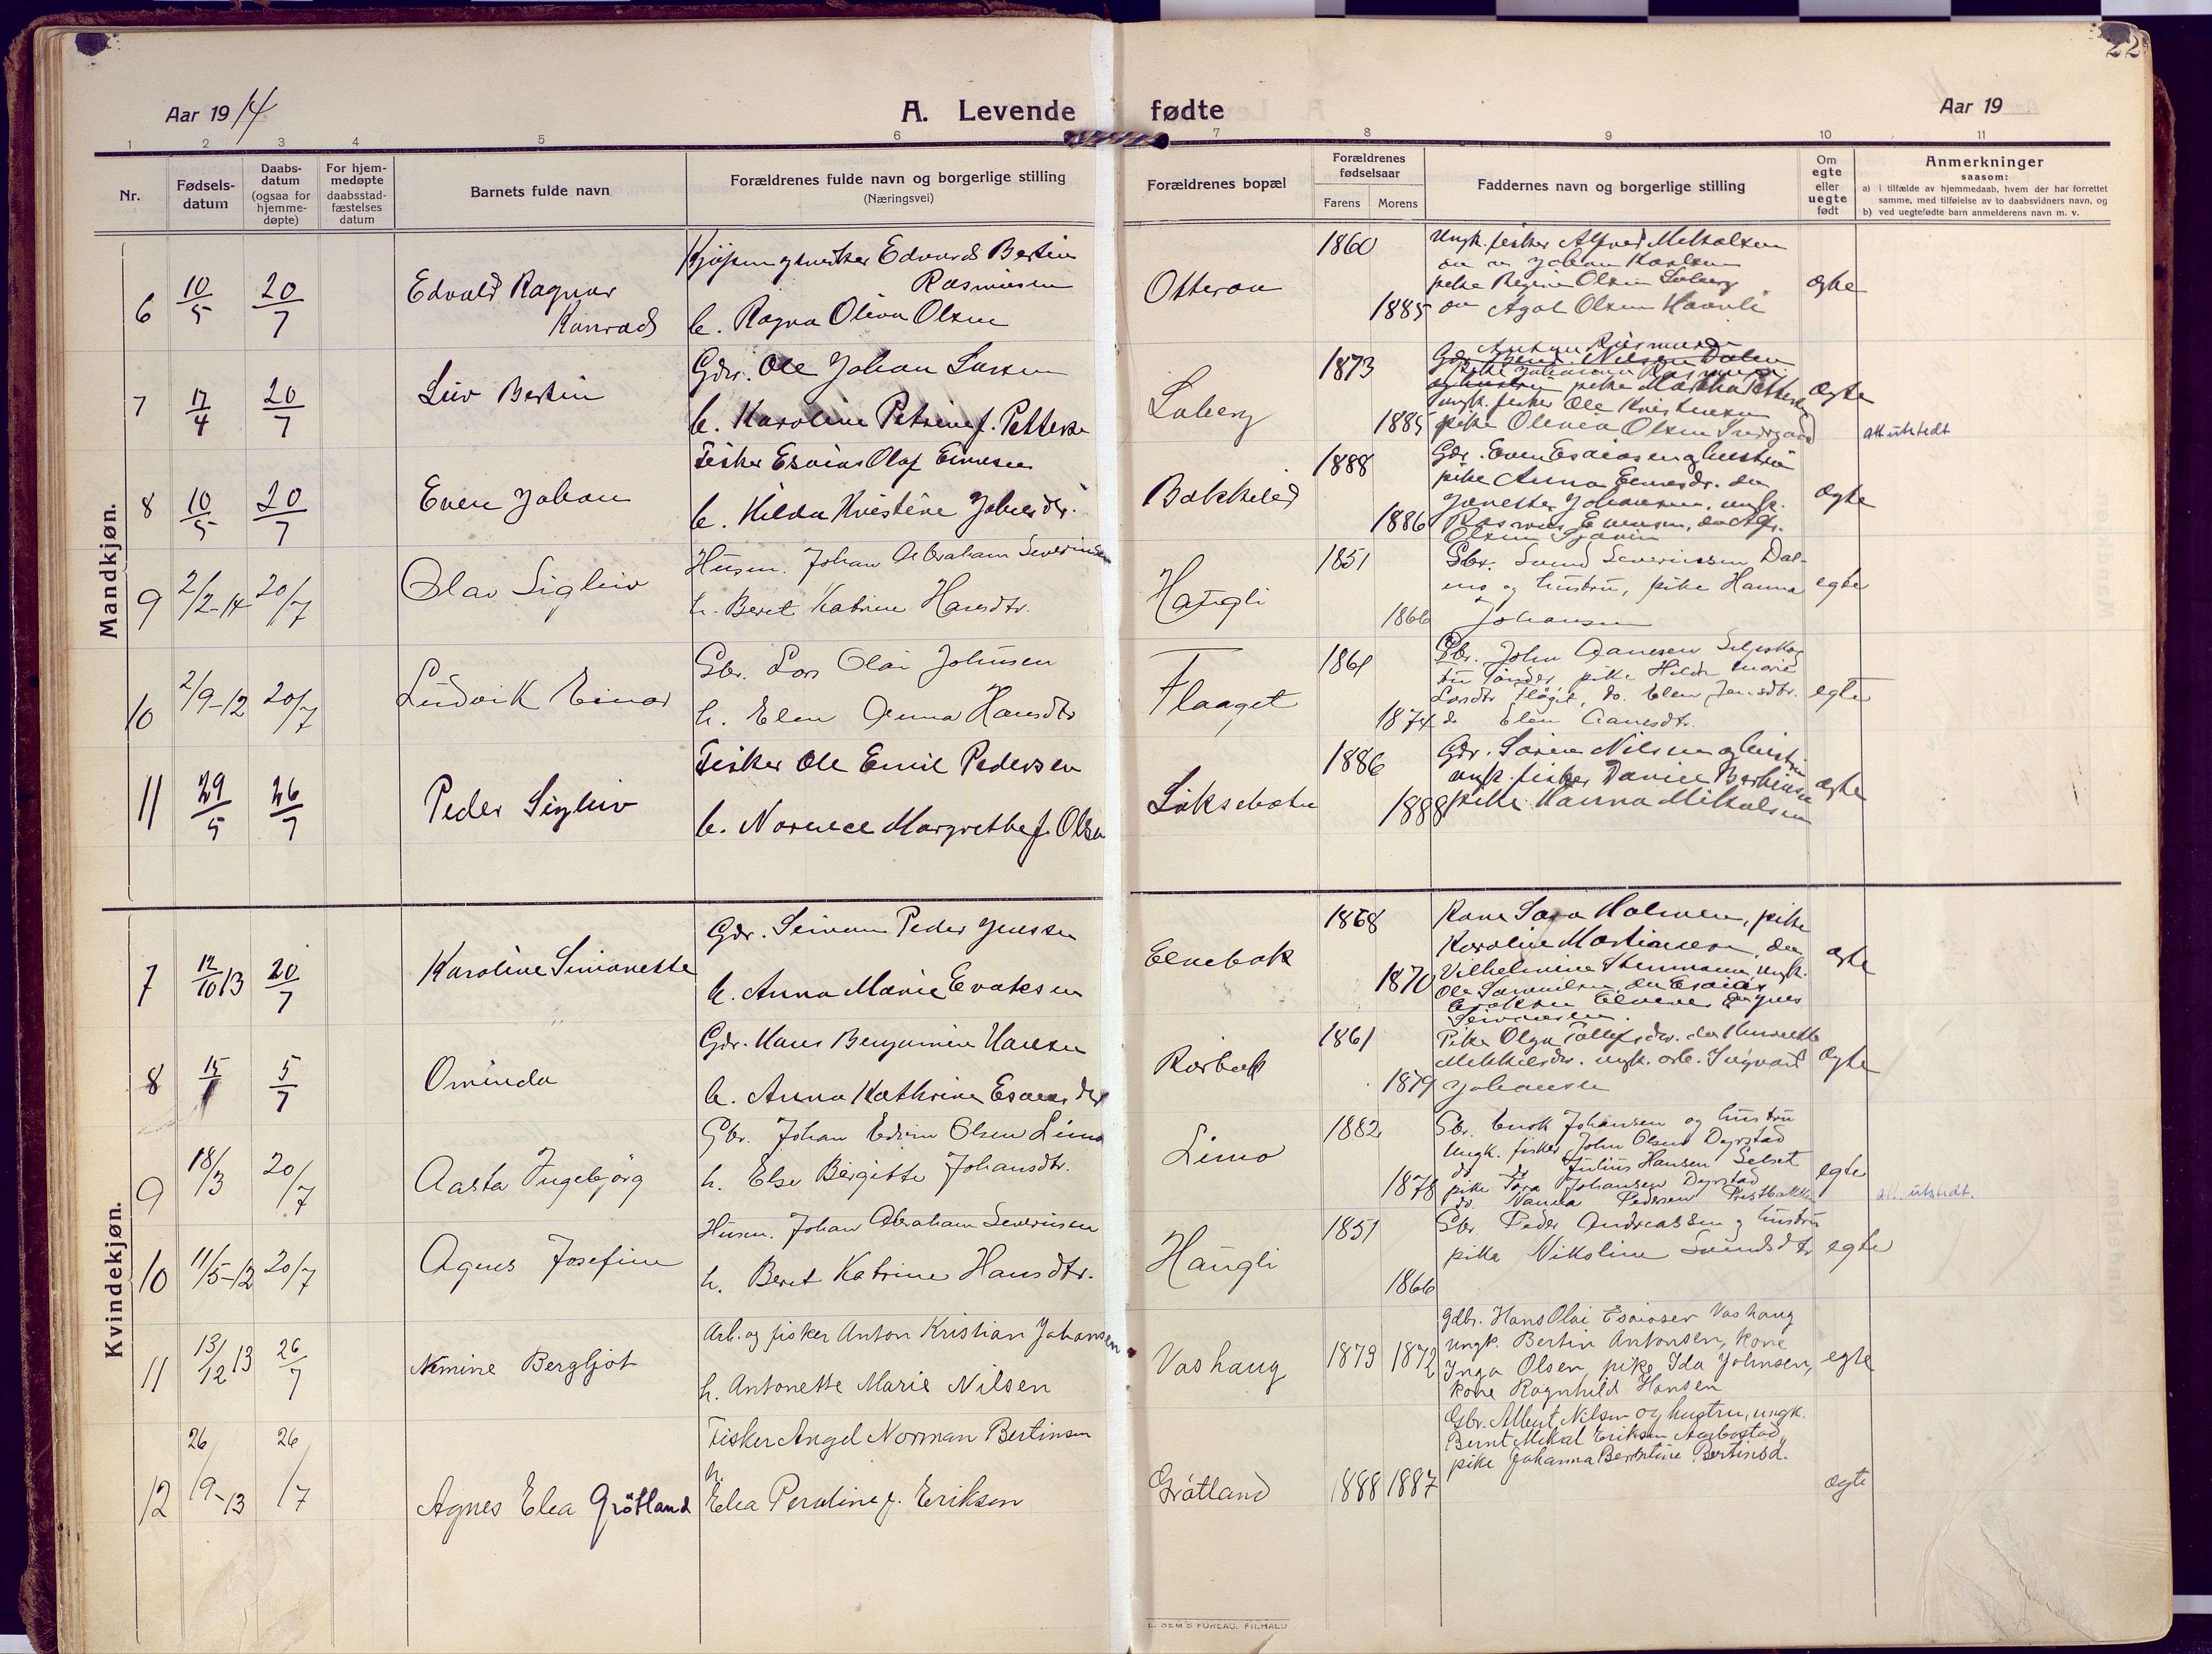 22
Aar 1914
A. Levende fødte
Aar 19
1 2 3 4 5 6 7 8 9 10 11
Nr.
Fødsels-
datum
Daabs-
datum
(ogsaa for
hjemme-
døpte)
For hjem-
medøpte
daabsstad-
fæstelses
datum
Barnets fulde navn
Forældrenes fulde navn og borgerlige stilling
(Næringsvei)
Forældrenes bopæl
Forældrenes
fødselsaar
Farens Morens
Faddernes navn og borgerlige stilling
Om
egte
eller
uegte
født
Anmerkninger
saasom:
a) i tilfælde av hjemmedaab, hvem der har forrettet
samme, med tilføielse av to daabsvidners navn, og
b) ved uegtefødte barn anmelderens navn m. v.
Mandkjøn.
6 10/5 20/7
Edvald Ragnar
Konrad
Edvard Bertin
Rasmussen
h. Ragna Oliva Olsen
Otteraa
1860
1885
Ungk. fisker Alfred Mikalsen
Johan Karlsen
pike Regine Olsen Loberg
do Agot Olsen Haavli
egte
7 17/4 20/7
Leiv Bertin
Gdr. Ole Johan Larsen
h. Karoline Petrine f. Petterse
Loberg
1873
1885
Nilsen Dalen
pike Martha Petterse
ungk. fisker Ole Kristensen
pike Olevia Olsen
egte
att utstedt
8 10/5 20/7
Even Johan
Fisker Esaias Olaf Evensen
h. Hilda Kristine Johnsdr.
Bakkelid
1888
1886
Gdr. Even Esaiasen og hustru
pike Anna Evensdr. do
Jenette Johansen, ungk.
Rasmus Evensen, do Alfr.
Olsen
egte
9 2/2-14 20/7
Olav Sigleiv
Husm. Johan Abraham Severinsen
h. Beret Katrine Hansdtr.
Haugli
1851
1866
Gbr. Svend Severinssen Dal-
eng og hustru, pike Hanna
Johansen
egte
10 2/9-12 20/7
Ludvik Einar
Gbr. Lars Olai Johnsen
h. Elen Anna Hansdtr
Flaaget
1861
1874
Gbr. John Aanesen Selpskog
pike Hilda Marie
Larsdtr Fløget, do. Elen Jensdtr.
do Elen Aanesdtr.
egte
11 29/5 26/7
Peder Sigleiv
Fisker Ole Emil Pedersen
h. Margrethe f. Olsen
Løksebotn
1886
1888
Gdr. Søren Nilsen og hustru
ungk. fisker Daniel Bertinsen
pike Hanna Mikalsen
egte
Kvindekjøn.
7 12/10 13 20/7
Karoline Simonette
Gdr. Peder Jensen
h. Anna Marie Evaksen
Elvebak
1868
1870
Kone Sara Holmen, pike
Karoline Martinsen, do
Vilhelmine Stenmann, ungk.
Ole Samuelsen, do Esaias
egte
8 15/1 5/7
Ominda
Gdr. Hans Benjamin Hansen
h. Anna Kathrine Esaiasdtr
Rørbak
1861
1879
Pike Olga Tollefsdtr. do
Mikkelsdtr. ungk. arb. Ingvart
Johansen
egte
9 18/3 20/7
Aasta Ingebjörg
Gbr. Johan Edvin Olsen Limo
h. Else Bergitte Johansdtr.
Limo
1882
1878
Gbr. Enok Johansen og hustru
Ungk. fisker John Olsen Dyrstad
do do Julius Hansen Selset
pike Tora Johansen Dyrstad
do. Nanna Pedersen Prestbakken
egte
att. utstedt.
10 11/5-12 20/7
Agnes Josefine
Husm. Johan Abraham Severinsen
h. Beret Katrine Hansdtr.
Haugli
1851
1866
Gbr. Peder Andreassen og hustru
pike Nikoline Svendsdtr
egte
11 13/12 13 26/7
Nemine Bergljot
Arb. og fisker Anton Kristian Johansen
h. Antonette Marie Nilsen
Vashaug
1879 1872
Gdbr. Hans Olai Esaiasen Vashaug
ungk. Bertin Antonsen, kone
Inga Olsen, pike Ida Johnsen,
kone Ragnhild Hansen
egte
12 26/9-13 26/7
Agnes Elea Grötland
Fisker Angel Norman Bertinsen
h.
Elea Peraline f. Eriksen
Grötland
1888 1887
Gbr. Albert Nilsen og hustru, ungk.
Bernt Mikal Eriksen Aarbostad,
pike Johanna Berntine Bertinsd.
egte